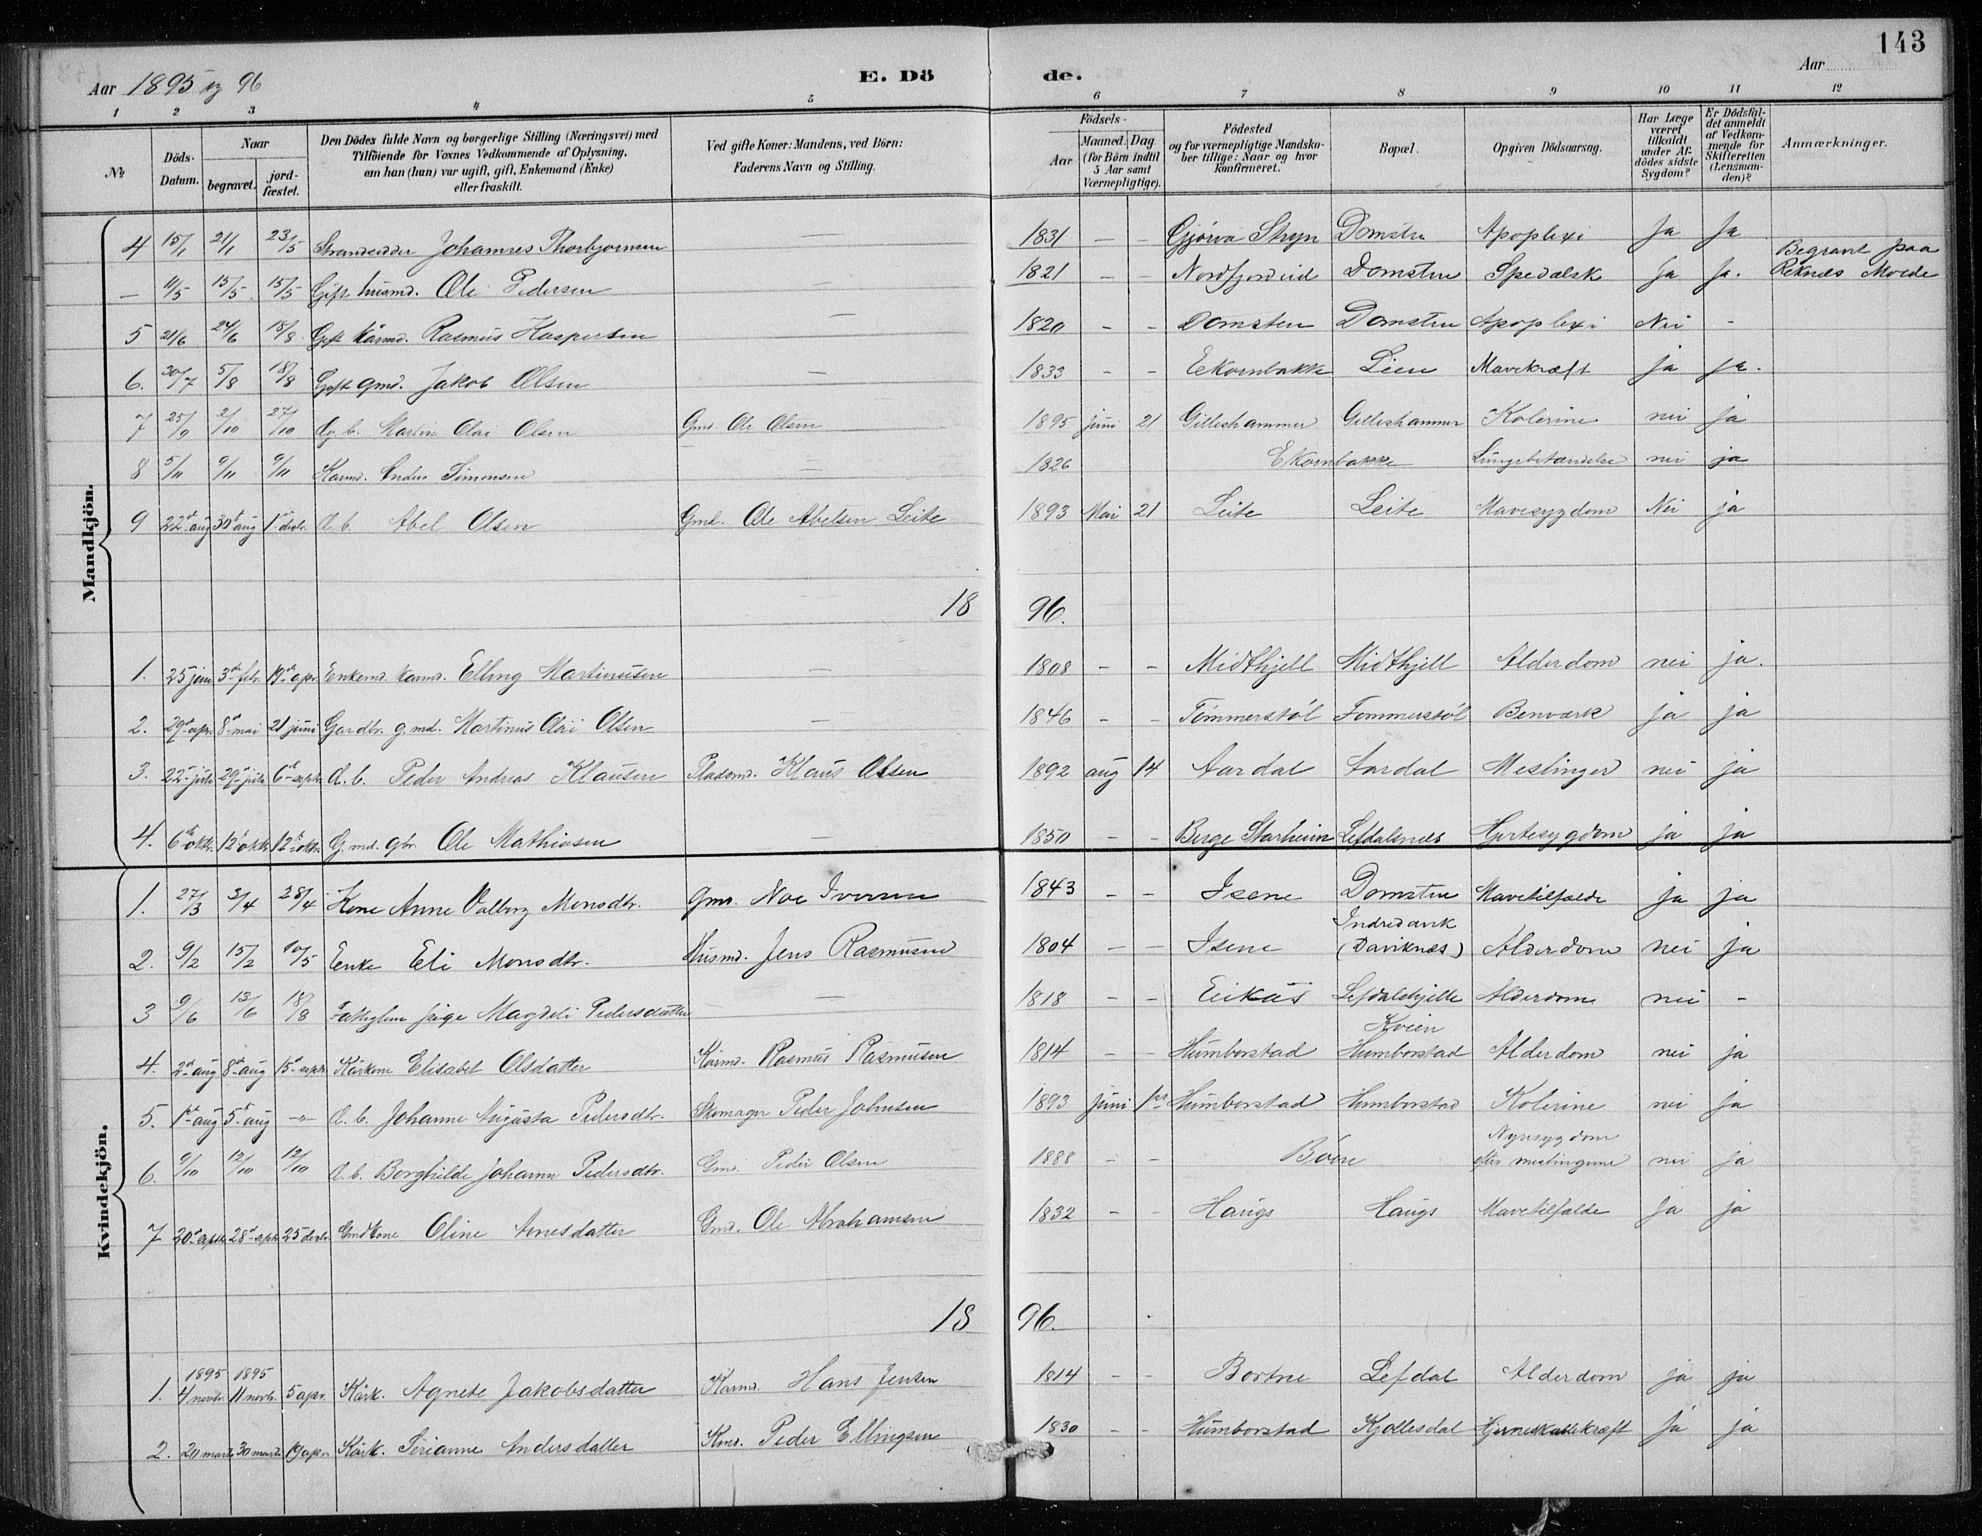 143
Aar 1895 og 96 E. Dö de. Aar
1 2 3 4 5 6 7 8 9 10 11 12
№
Döds-Datum.
Naar
begravet.
jord-fæstet.
Den Dödes fulde Navn og borgerlige Stilling (Næringsvei) med
Tilföiende for Voxnes Vedkommende af Oplysning,
om han (hun) var ugift, gift, Enkemand (Enke)
eller fraskilt.
Ved gifte Koner: Mandens, ved Börn:
Faderens Navn og Stilling.
Födsels-
Aar
Maaned. Dag.
(for Börn indtil
5 Aar samt
Værnepligtige).
Födested
og for værnepligtige Mandska-
ber tillige: Naar og hvor
konfirmeret.
Bopæl.
Opgiven Dödsaarsag.
Har Læge
været
tilkaldt
under Af-
dödes sidste
Sygdom?
Er Dödsfal-
det anmeldt
af Vedkom-
mende for
Skifteretten
(Lensman-
den)?
Anmærkninger.
Mandkjön.
4 15/1 21/1 23/5 Strandsidder Johannes Thorbjørnsen — 1831 — — Gjørva Stryn Domsten Apoplexi Ja Ja
— 11/5 15/5 15/5 Gift husmd. Ole Pedersen — 1821 — — Nordfjordeid Domsten Spedalsk Ja Ja. Begravet paa Reknæs Molde
5 21/6 24/6 18/8 Gift kårmd. Rasmus Kaspersen — 1820 — — Domsten Domsten Apoplexi Nei -
6. 30/7 5/8 18/8 Gift gmd. Jakob Olsen — 1833 — — Eekornbakke Lien Mavekræft ja ja.
7 25/9 2/10 27/10 Ug. b. Martin Olai Olsen Gmd. Ole Olsen 1895 juni 21 Gilleshammer Gilleshammer Kolerine nei ja
8 5/11 9/11 9/11 Kårmd. Anders Simonsen 1826 Ekornbakke Lungebetændelse nei ja
9 22de aug 30te aug 1ste decbr. U. b. Abel Olsen Gmd. Ole Abelsen Leite 1893 Mai 21 Leite Leite Mavesygdom Nei ja
18 96.
1. 25 jan 3de febr. 19de apr. Enkemd. kårmd. Elling Martinusen — 1808 — — Midthjell Midthjell Alderdom nei ja.
2. 29de apr. 8de mai 21 juni Gardbr. g.md. Martinus Olai Olsen — 1846 — — Tømmerstøl Tømmerstøl Benværk ja ja
3. 22de juli 29de juli 6te septr. U. b. Peder Andreas Klausen Pladsmd. Klaus Olsen 1892 aug 14 Aardal Aardal Meslinger nei ja
4. 6te oktr. 12te oktr. 12te oktr. G.md. gbr. Ole Mathiasen — 1850 — — Berge Starheim Lefdalsnes Hjertesygdom ja ja
Kvindekjön.
1. 27/3 3/4 28/4 Kone Anne Valborg Monsdtr. Gmd. Noe Iversen 1843 — — Isene Domsten Mavetilfælde ja ja
2. 9/2 15/2 10/5 Enke Eli Monsdtr. Husmd. Jens Rasmusen 1804 — — Isene Indredavik (Daviknæs) Alderdom nei ja
3 9/6 13/6 18/8 Fattiglem pige Magdeli Pedersdatter — 1818 — — Eikås Lefdalshjelle Alderdom nei -
4. 2de aug 8de aug 15de septr. Kårkone Elisabet Olsdatter Kårmd. Rasmus Rasmusen 1814 — — Humborstad Kvien Humborstad Alderdom nei ja
5. 1ste aug 5te aug —"— U. b. Johanne Augusta Pedersdtr. Skomager Peder Johnsen 1893 juni 1ste Humborstad Humborstad Kolerine nei ja
6. 9/10 12/10 12/10 U. b. Borghilde Johanne Pedersdtr. Gmd. Peder Olsen 1888 Bøen Nyresygdom efter meslingerne nei ja
7 20de septr. 28de septr. 25 decbr. Gmdkone Oline Arnesdatter Gmd. Ole Abrahamsen 1832 — — Haugs Haugs Mavetilfælde Ja ja
18 96.
1. 1895 4 novbr. 1895 11 novb. 5 apr. Kårk. Agnete Jakobsdatter Kårmd. Hans Jensen 1814 — — Bortne Lefdal Alderdom ja ja
2. 20 marts 30 marts 19 apr. Kårk. Serianne Andersdatter Kmd. Peder Ellingsen 1830 — — Humborstad Kjøllesdal Hjerneskallekræft Ja ja